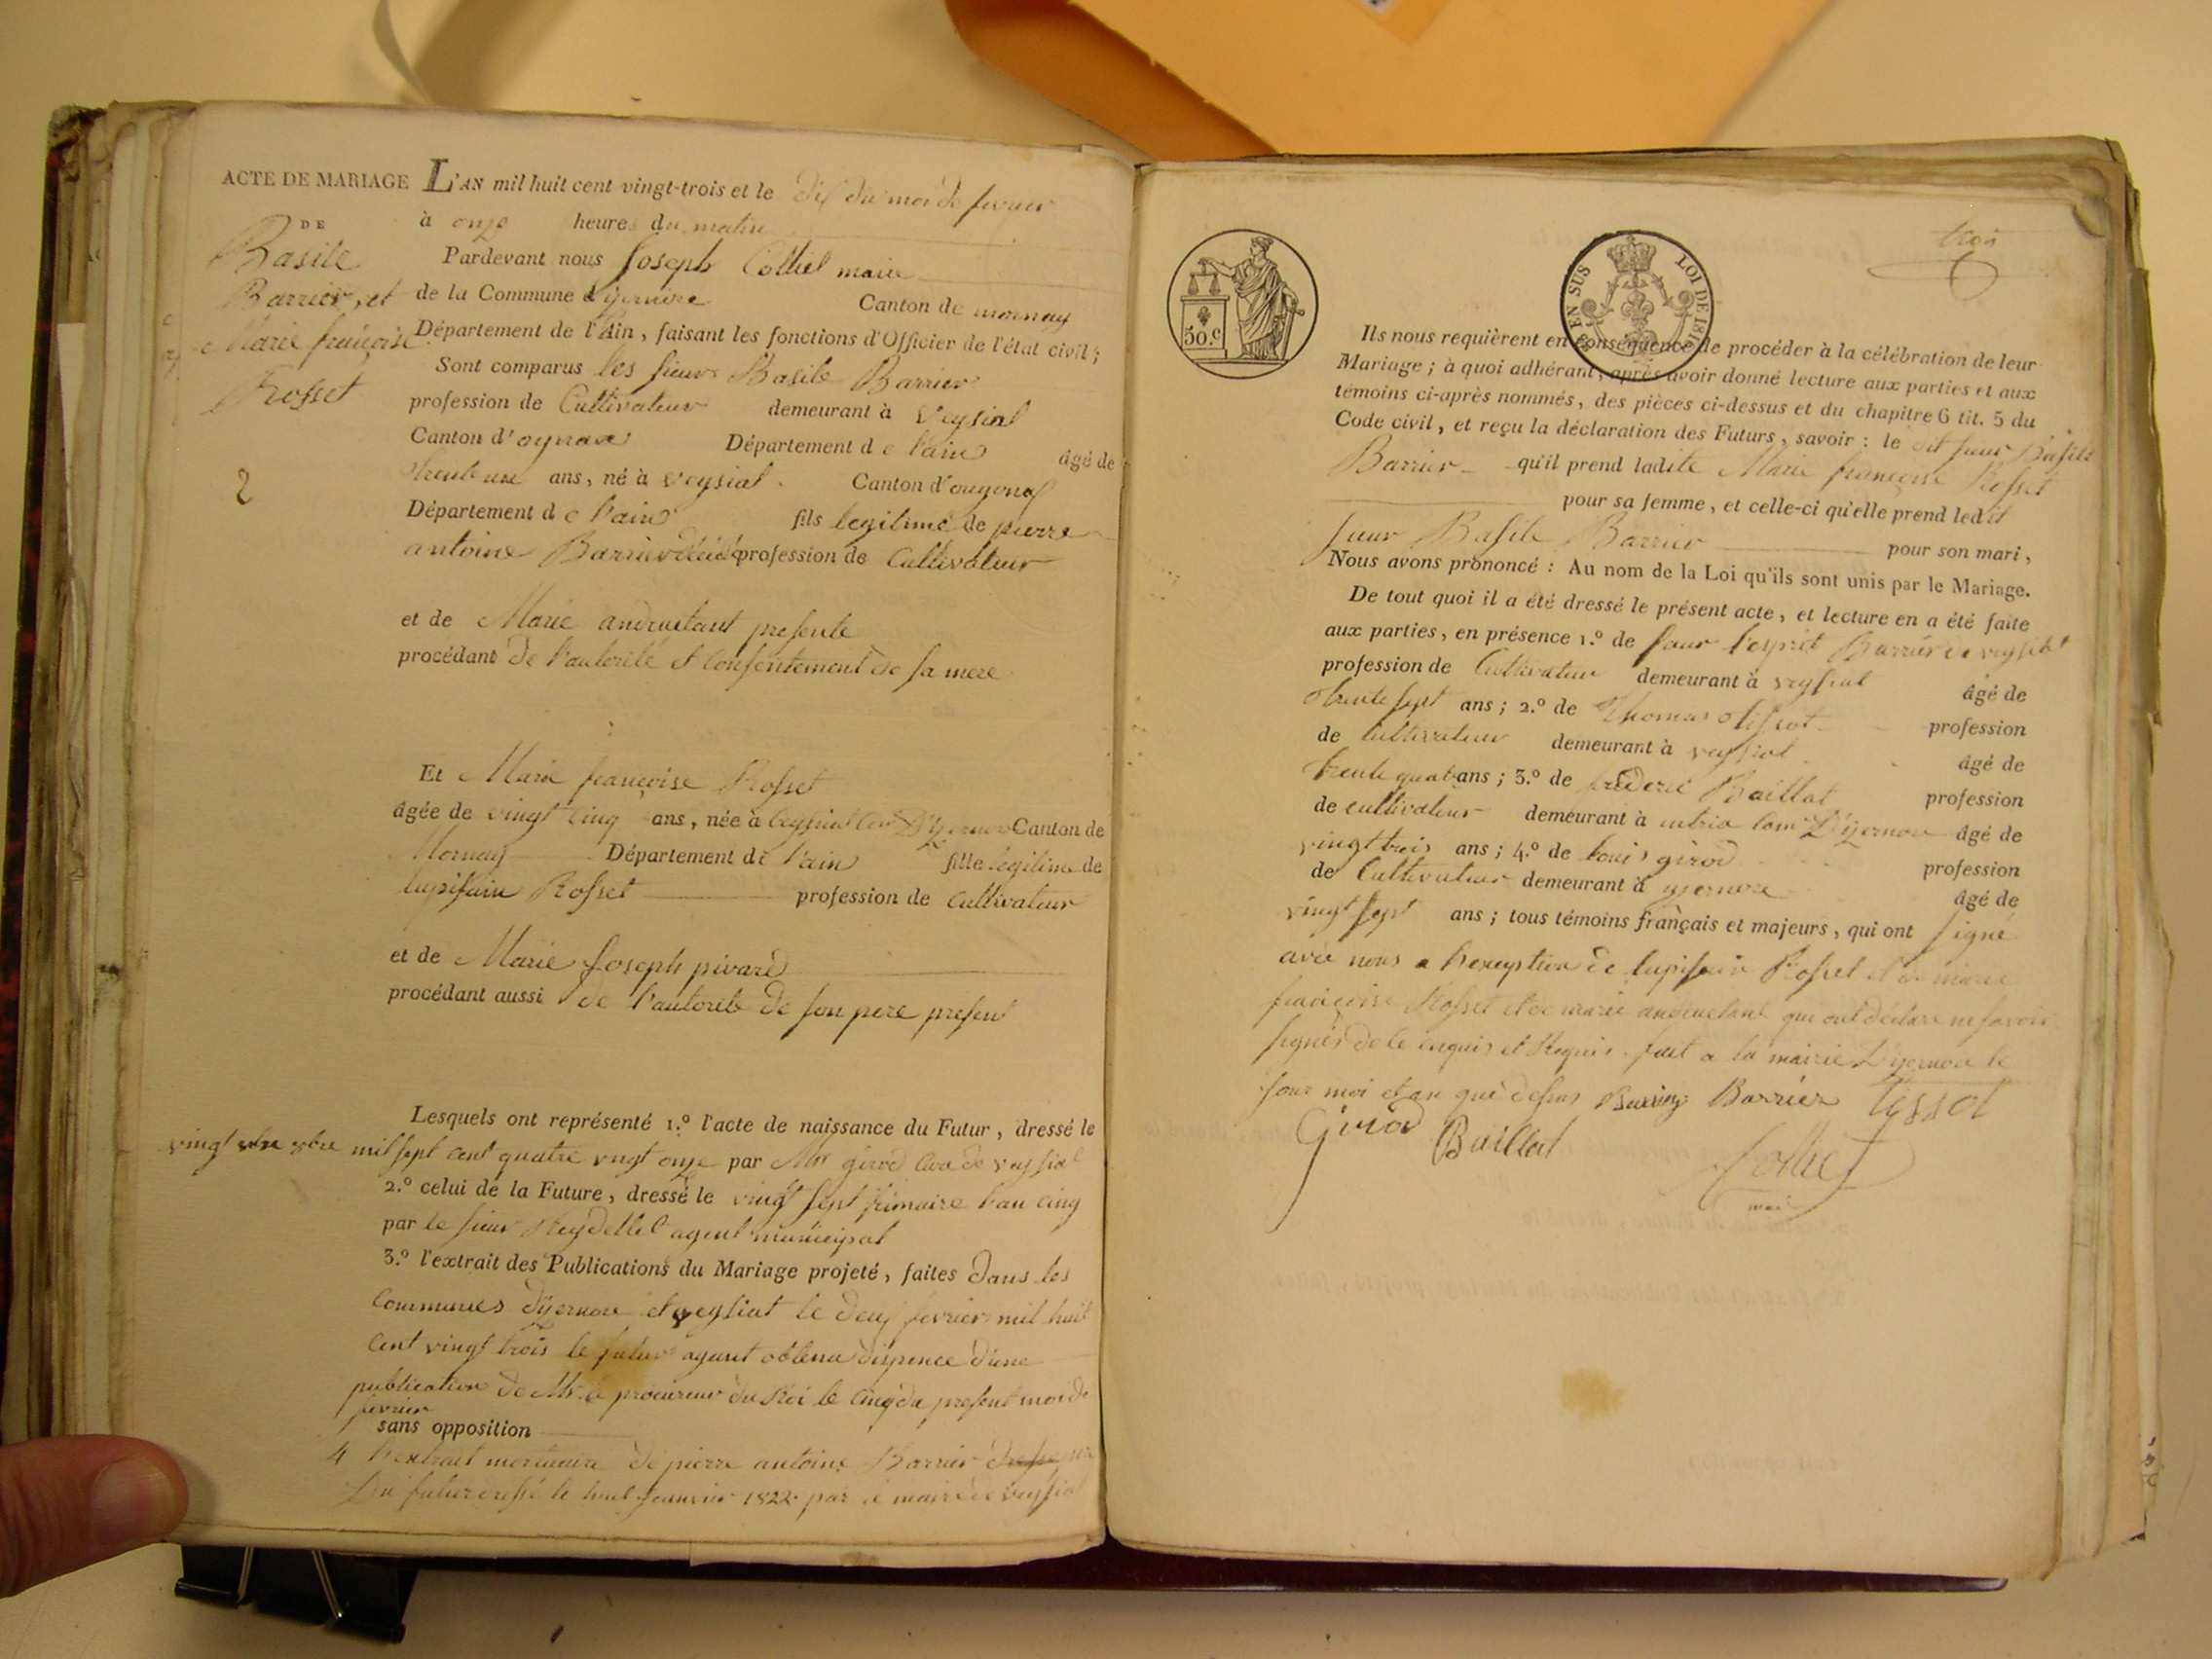 ACTE DE MARIAGE
DE
Basile
Barrier, et
Marie françoise
Rosset
2
L'AN mil huit cent vingt-trois et le dix du moi de fevrier
à onze heures du matin
Pardevant nous Joseph Collet maire
de la Commune d'yzernore Canton de mornay
Département de l'Ain, faisant les fonctions d'Officier de l'état civil;
Sont comparus les sieurs Basile Barrier
profession de Cultivateur demeurant à veysiat
Canton d'oyonax Département de l'ain âgé de
trente une ans, né à veysiat Canton d'oyonax
Département de l'ain fils legitime de pierre
antoine Barrier profession de Cultivateur
et de Marie andruetant presente
procédant de l'autorité et Consentement de sa mere
Et Marie françoise Rosset
âgée de vingt cinq ans, née à Canton de
Mornay Département de l'ain fille legitime de
lupisain Rosset profession de cultivateur
et de Marie Joseph pivard
procédant aussi de l'autorité de son pere present
Lesquels ont représenté 1.º l'acte de naissance du Futur, dressé le
vingt xbre mil sept cent quatre vingt onze par Mr girod de veysiat
2.º celui de la Future, dressé le vingt sept frimaire l'an cinq
par le sieur Reydellet agent municipal
3.º l'extrait des Publications du Mariage projeté, faites dans les
communes d'yzernore et veysiat le deux fevrier mil huit
cent vingt trois le futur ayant obtenu dispence d'une
publication de Mr. le procureur du Roi le cinq du present moi de
fevrier
sans opposition
4 l'extrait mortuaire de pierre antoine Barrier pere
du futur dressé le huit Janvier 1822 par le maire de veysiat
trois
50 c.
EN SUS LOI DE 1816
Ils nous requièrent en conséquence de procéder à la célébration de leur
Mariage; à quoi adhérant, après avoir donné lecture aux parties et aux
témoins ci-après nommés, des pièces ci-dessus et du chapitre 6 tit. 5 du
Code civil, et reçu la déclaration des Futurs, savoir: le dit sieur Basile
Barrier qu'il prend ladite Marie françoise Rosset
pour sa femme, et celle-ci qu'elle prend ledit
sieur Basile Barrier pour son mari,
Nous avons prononcé: Au nom de la Loi qu'ils sont unis par le Mariage.
De tout quoi il a été dressé le présent acte, et lecture en a été faite
aux parties, en présence 1.º de l'esprit Barrier de veysiat
profession de Cultivateur demeurant à veysiat âgé de
trente sept ans; 2.º de Thomas tissot profession
de cultivateur demeurant à veysiat âgé de
trente quatre ans; 3.º de frederic Baillat profession
de cultivateur demeurant à intria com d'yzernore âgé de
vingt trois ans; 4.º de louis girod profession
de Cultivateur demeurant à yzernore âgé de
vingt sept ans; tous témoins français et majeurs, qui ont signé
avec nous a l'exception de lupisain Rosset et de marie
françoise Rosset et de marie andruetant qui ont declare ne savoir
signer de ce enquis et Requis. fait a la mairie d'yzernore le
jour moi et an que dessus Barrier Barrier tissot
Girod Baillat Collet
mai